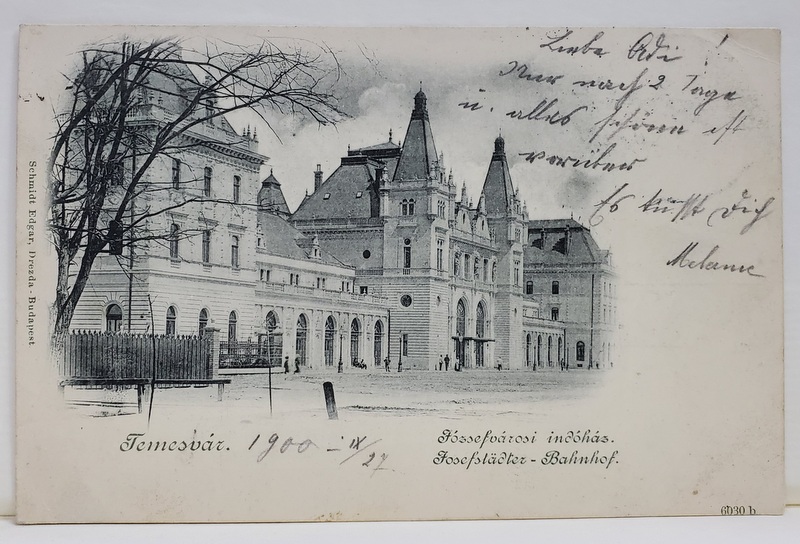 Liebe Adi!
Nur noch 2 Tage
u. alles schöne ist
vorüber
Es küsst Dich
Melanie
Schmidt Edgar, Drezda - Budapest
Temesvár. 1900 - IX/27.
Józsefvárosi indóház.
Josefstädter - Bahnhof.
6030 b.